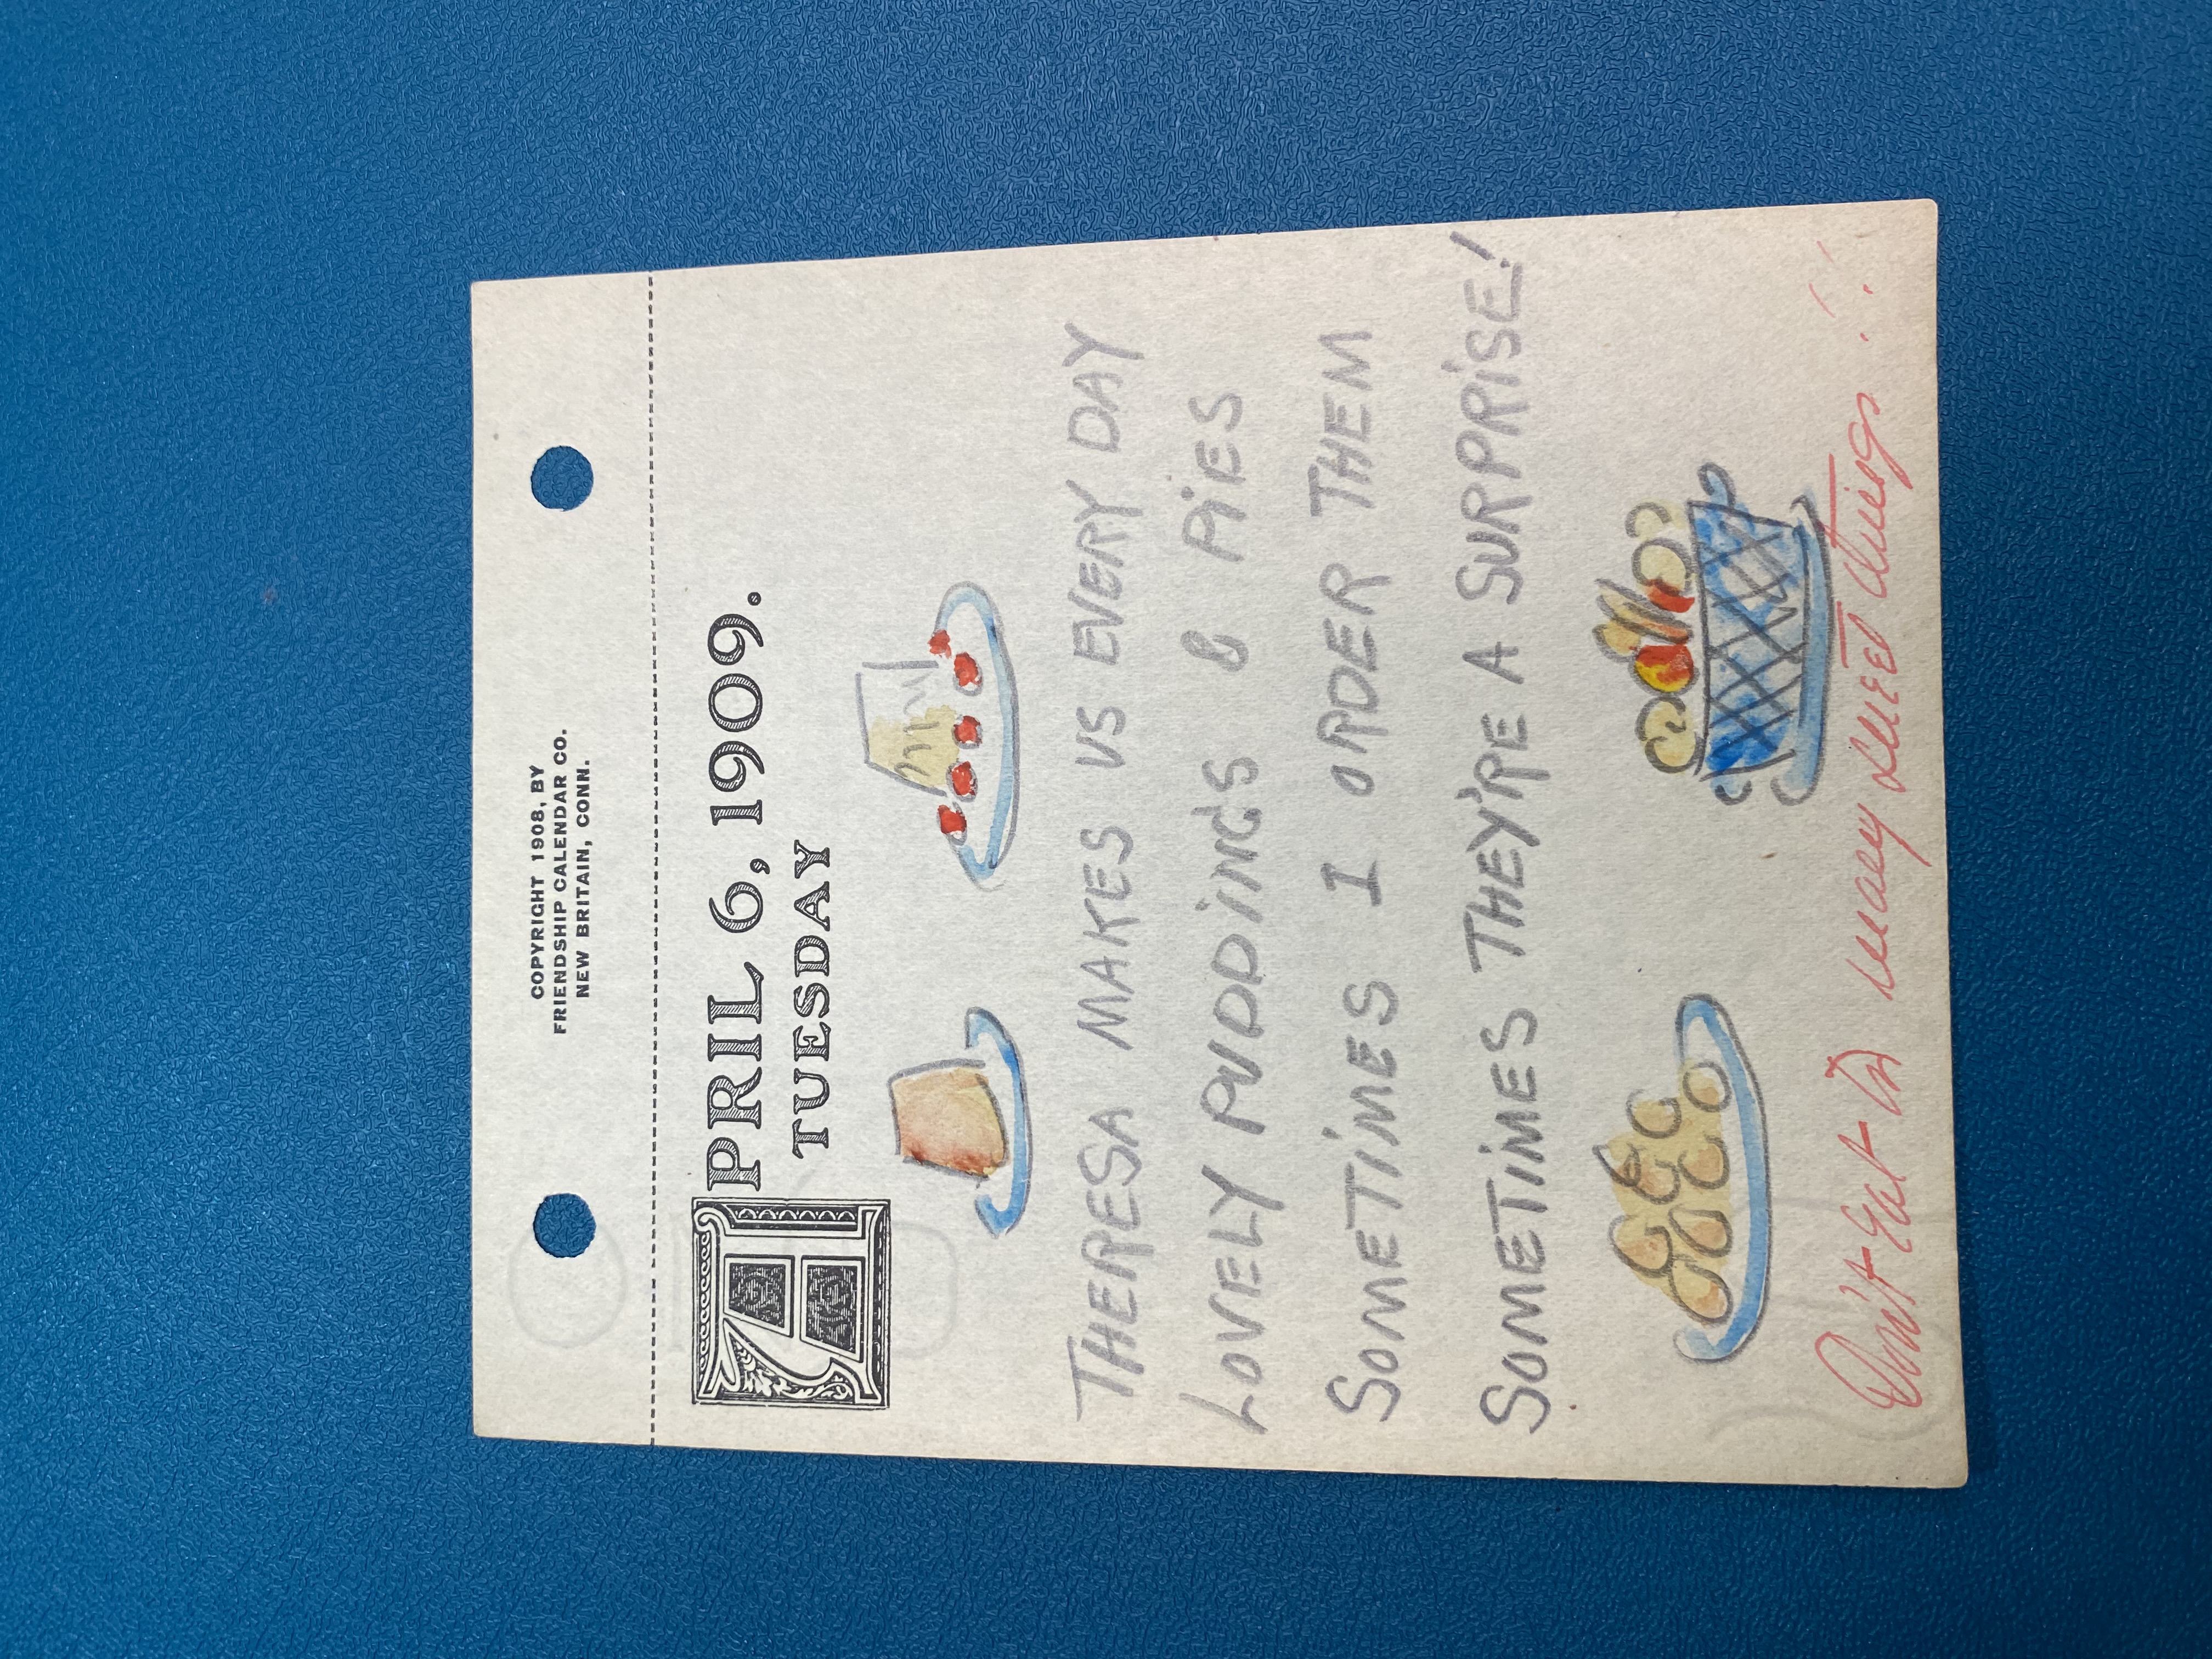 COPYRIGHT 1908, BY
FRIENDSHIP CALENDAR CO.
NEW BRITAIN, CONN.
APRIL 6, 1909.
TUESDAY
THERESA MAKES US EVERY DAY
LOVELY PUDDINGS & PiES
SOMETiMES I ORDER THEM
SOMETiMES THEY'RE A SURPRiSE!
Don't Eat too many sweet things!!